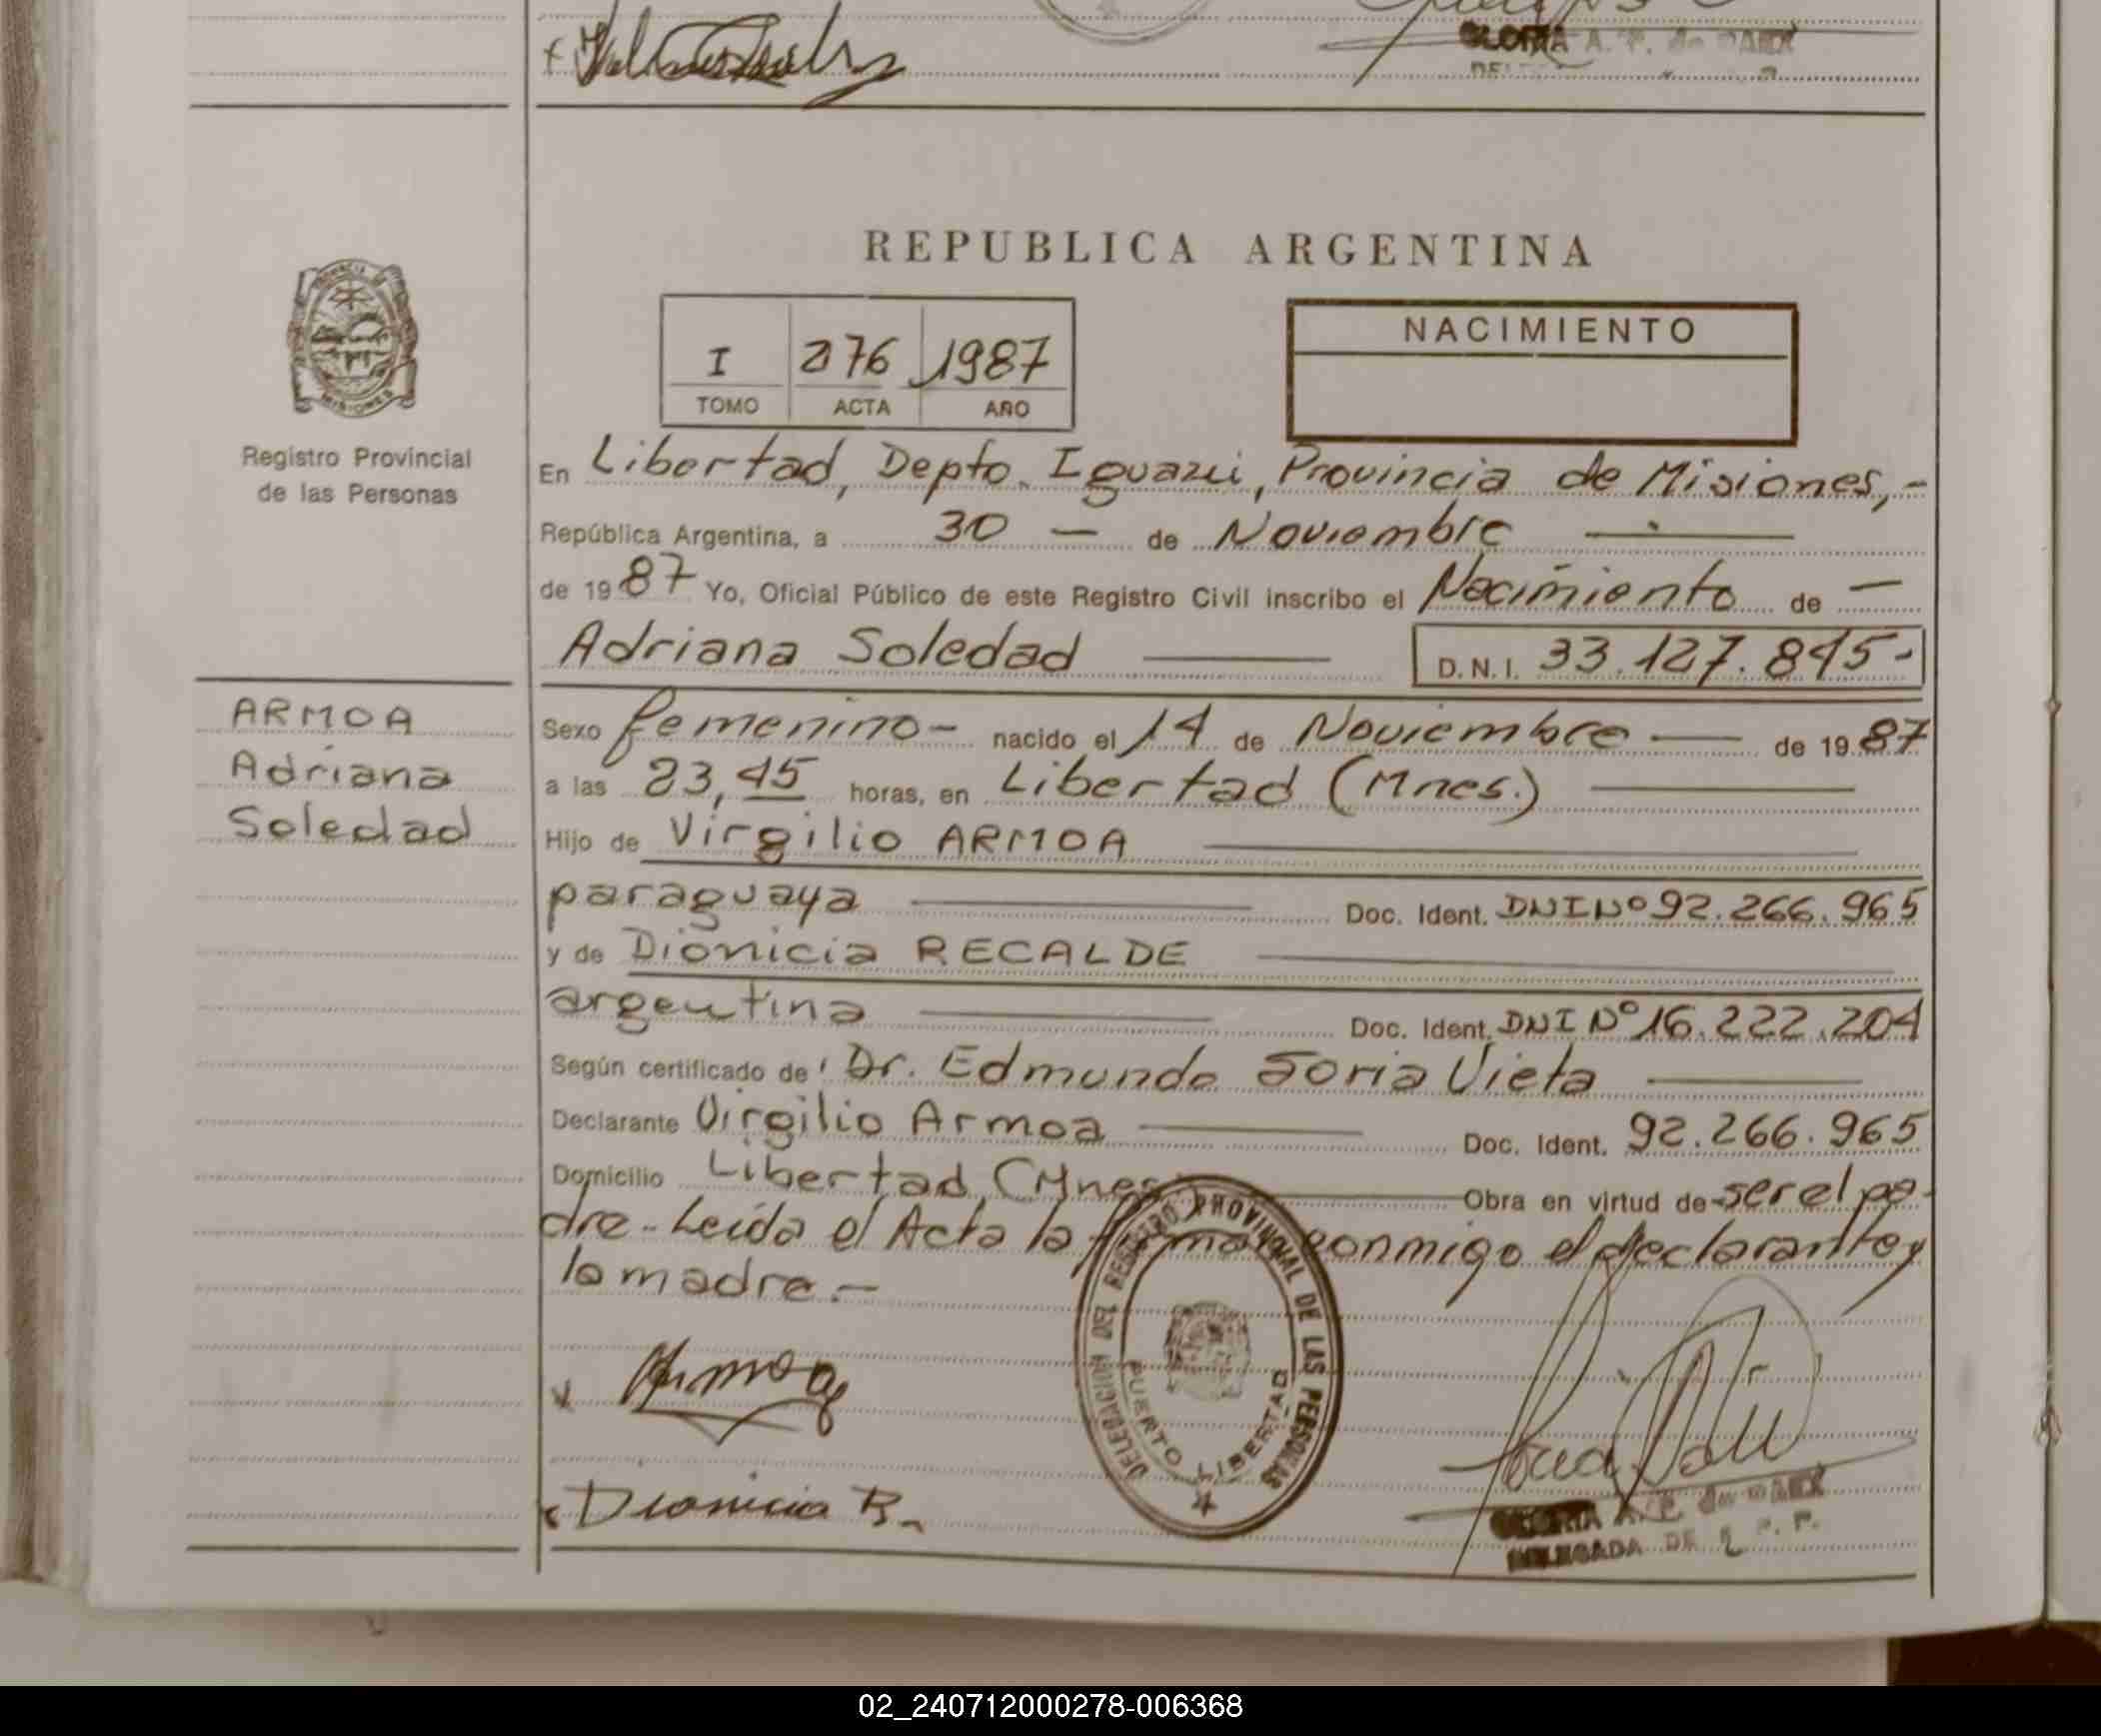 GLORIA A. P. de
REPUBLICA ARGENTINA
I 276 1987
TOMO ACTA AÑO
NACIMIENTO
MISIONES
Registro Provincial
de las Personas
En Libertad, Depto. Iguazú, Provincia de Misiones,-
República Argentina, a 30 — de Noviembre —
de 1987 Yo, Oficial Público de este Registro Civil inscribo el Nacimiento de —
Adriana Soledad — D.N.I. 33.127.845-
ARMOA
Adriana
Soledad
Sexo femenino- nacido el 14 de Noviembre — de 1987
a las 23,45 horas, en Libertad (Mnes.) —
Hijo de Virgilio ARMOA —
paraguaya — Doc. Ident. DNI Nº 92.266.965
y de Dionicia RECALDE —
argentina — Doc. Ident. DNI Nº 16.222.204
Según certificado de Dr. Edmundo Soria Vieta —
Declarante Virgilio Armoa — Doc. Ident. 92.266.965
Domicilio Libertad, (Mnes — Obra en virtud de ser el pa-
dre.- Leída el Acta la firman conmigo el declarante y
la madre.-
Armoa
DELEGACION DEL REGISTRO PROVINCIAL DE LAS PERSONAS
PUERTO LIBERTAD
Dionicia R.
GLORIA A. P. de
DELEGADA DE
02_240712000278-006368